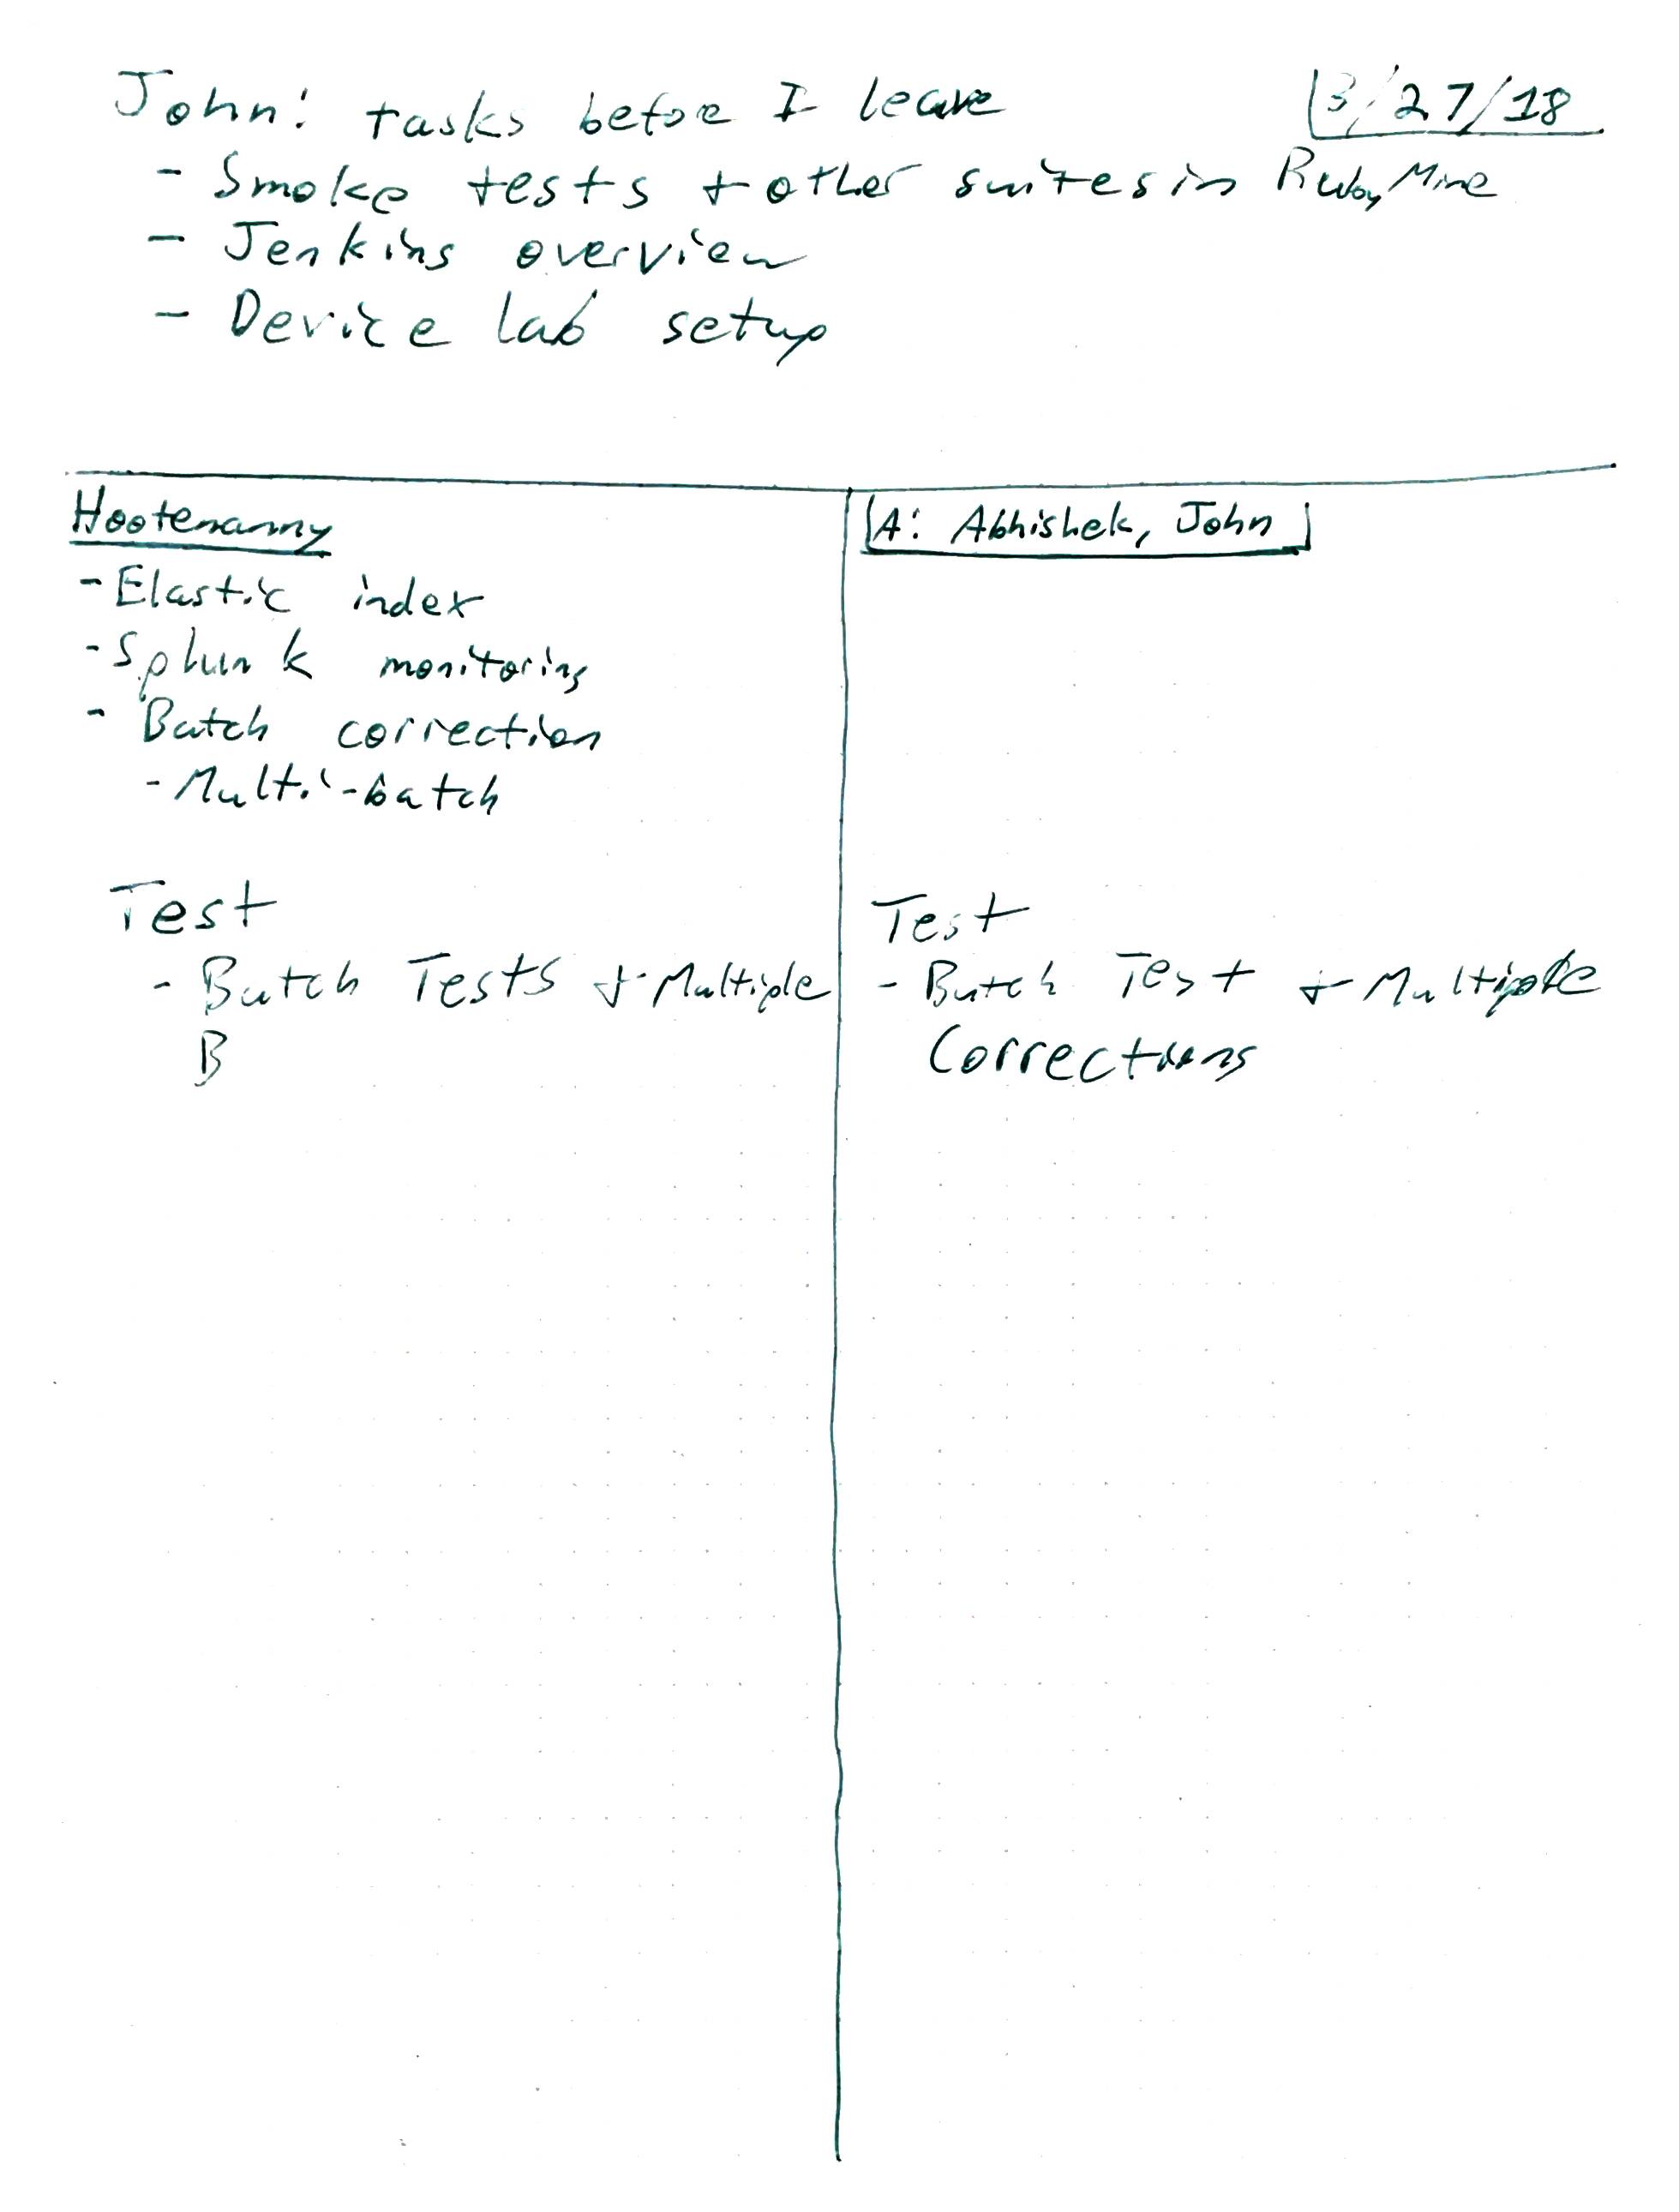 John: tasks before I leave
3/27/18
- Smoke tests + other suites in RubyMine
- Jenkins overview
- Device lab setup
Hootenanny
- Elastic index
- Splunk monitoring
- Batch correction
- Multi-batch
Test
- Batch Tests + Multiple
B
A: Abhishek, John
Test
- Batch Test + Multiple
Corrections